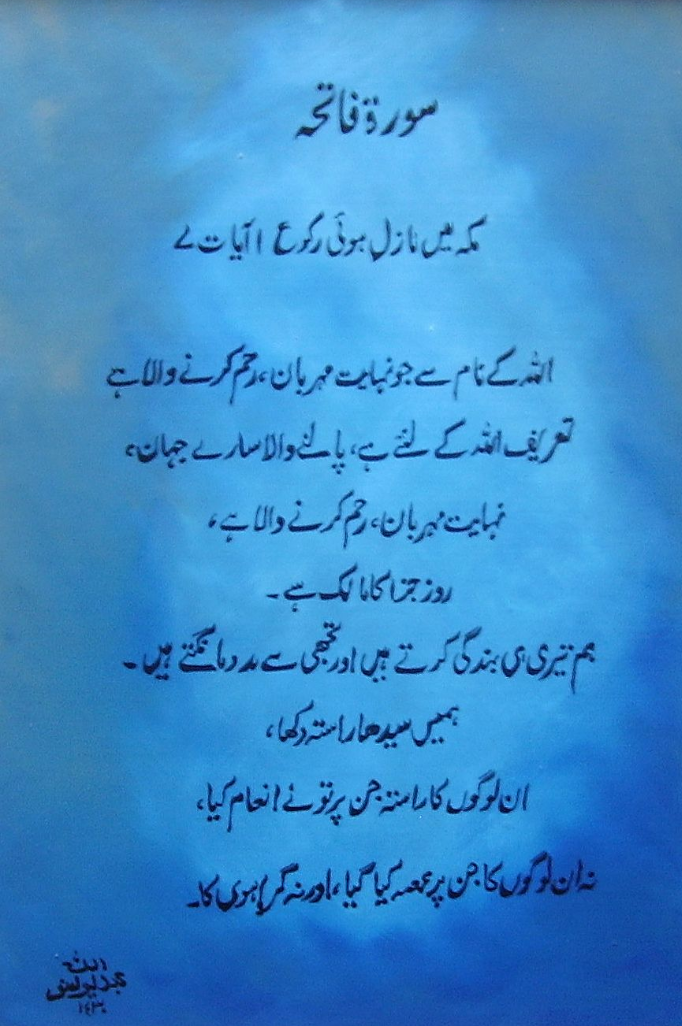 سورۃ فاتحہ
مکہ میں نازل ہوئی رکوع ۱ آیات ۷
اللہ کے نام سے جو نہایت مہربان، رحم کرنے والا ہے
تعریف اللہ کے لئے ہے، پالنے والا سارے جہان،
نہایت مہربان، رحم کرنے والا ہے،
روز جزا کا مالک ہے۔
ہم تیری ہی بندگی کرتے ہیں اور تجھی سے مدد مانگتے ہیں۔
ہمیں سیدھا راستہ دکھا،
ان لوگوں کا راستہ جن پر تو نے انعام کیا،
نہ ان لوگوں کا جن پر غصہ کیا گیا، اور نہ گمراہوں کا۔
۱٤۳۰